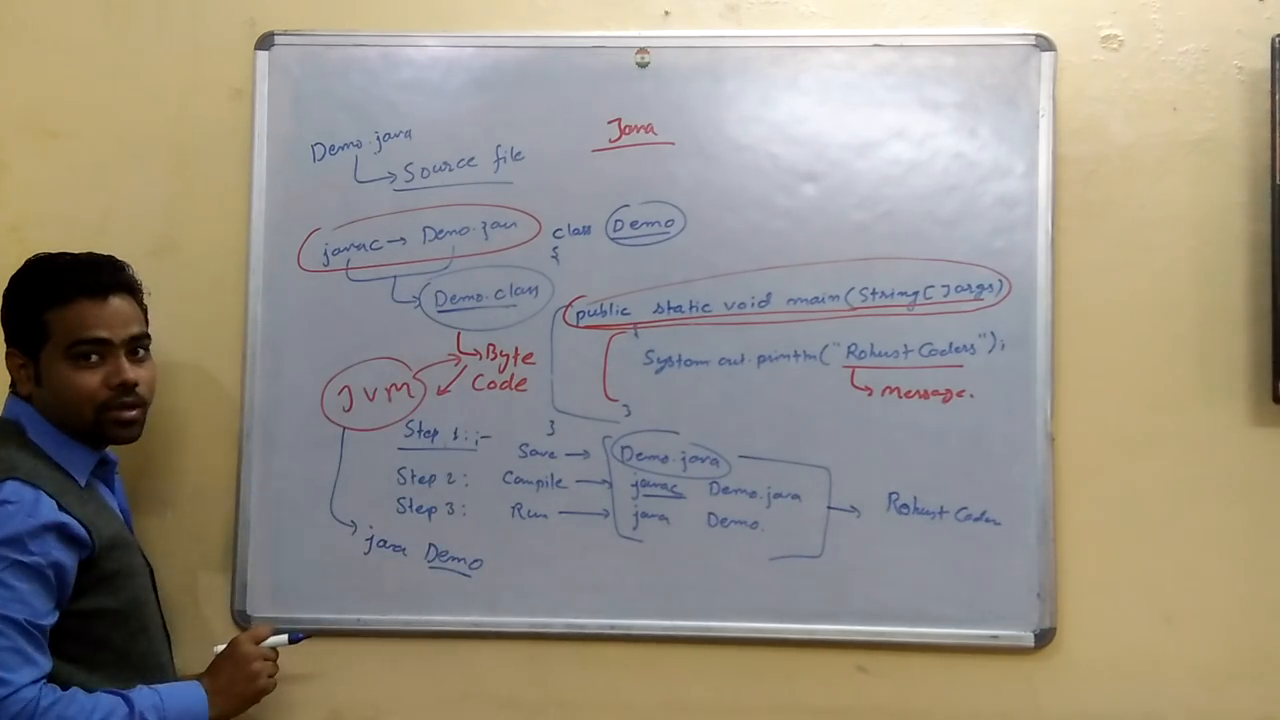 Java
Demo.java
Source file
javac → Demo.java
Demo.class
Byte
Code
JVM
class Demo
{
public static void main(String[]args)
{
System.out.println("Robust Coders");
Message.
}
}
Step 1:- Save → Demo.java
Step 2: Compile → javac Demo.java
Step 3: Run → java Demo.
Robust Coder
java Demo